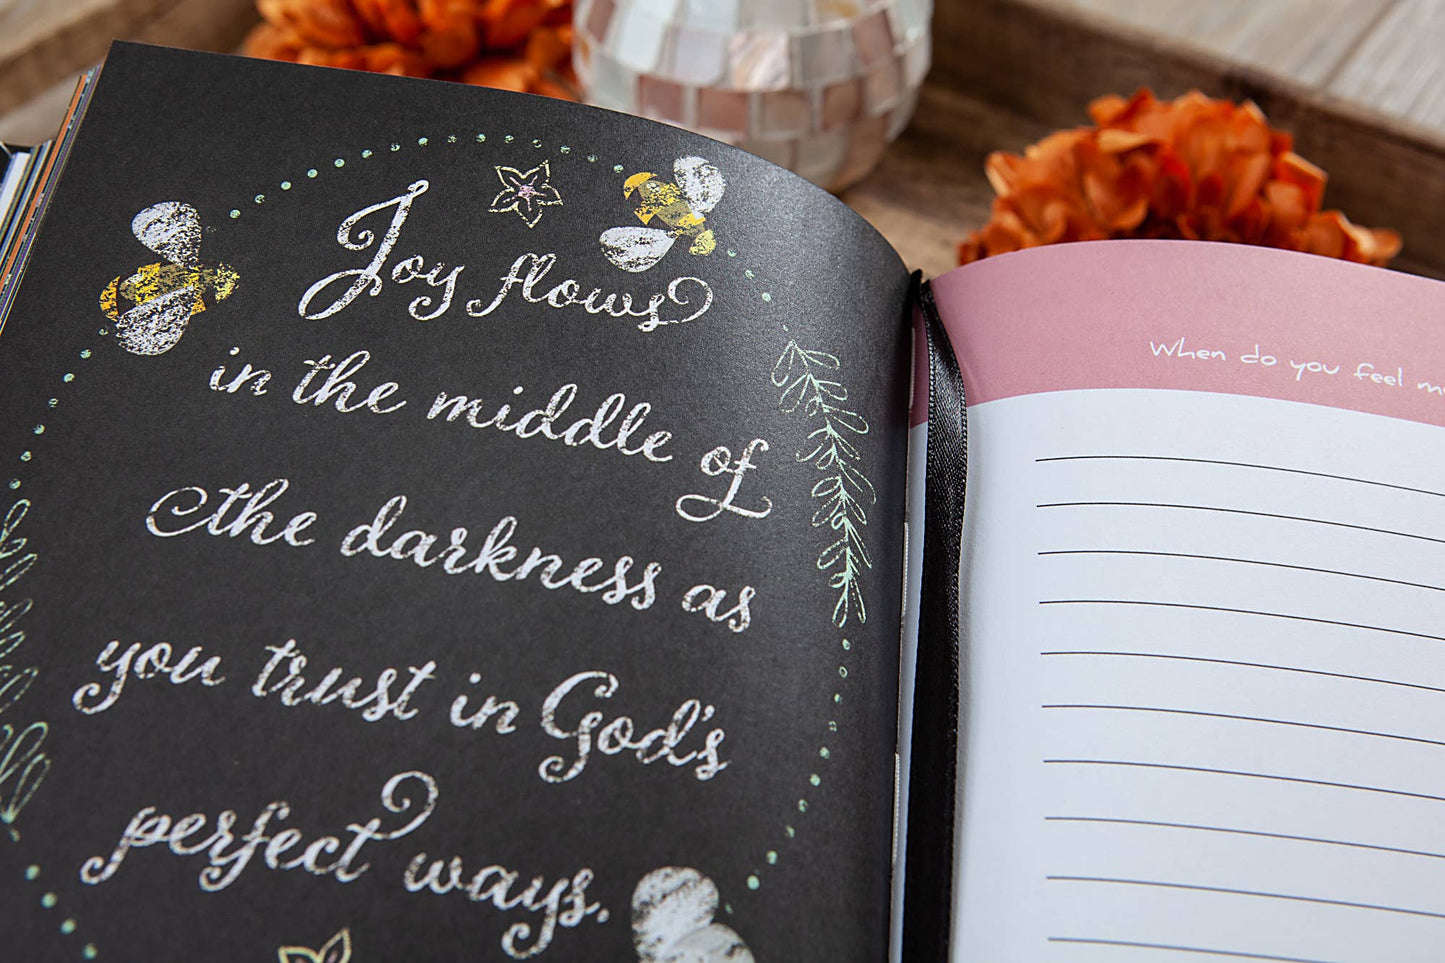 Joy flows
in the middle of
the darkness as
you trust in God's
perfect ways.
When do you feel